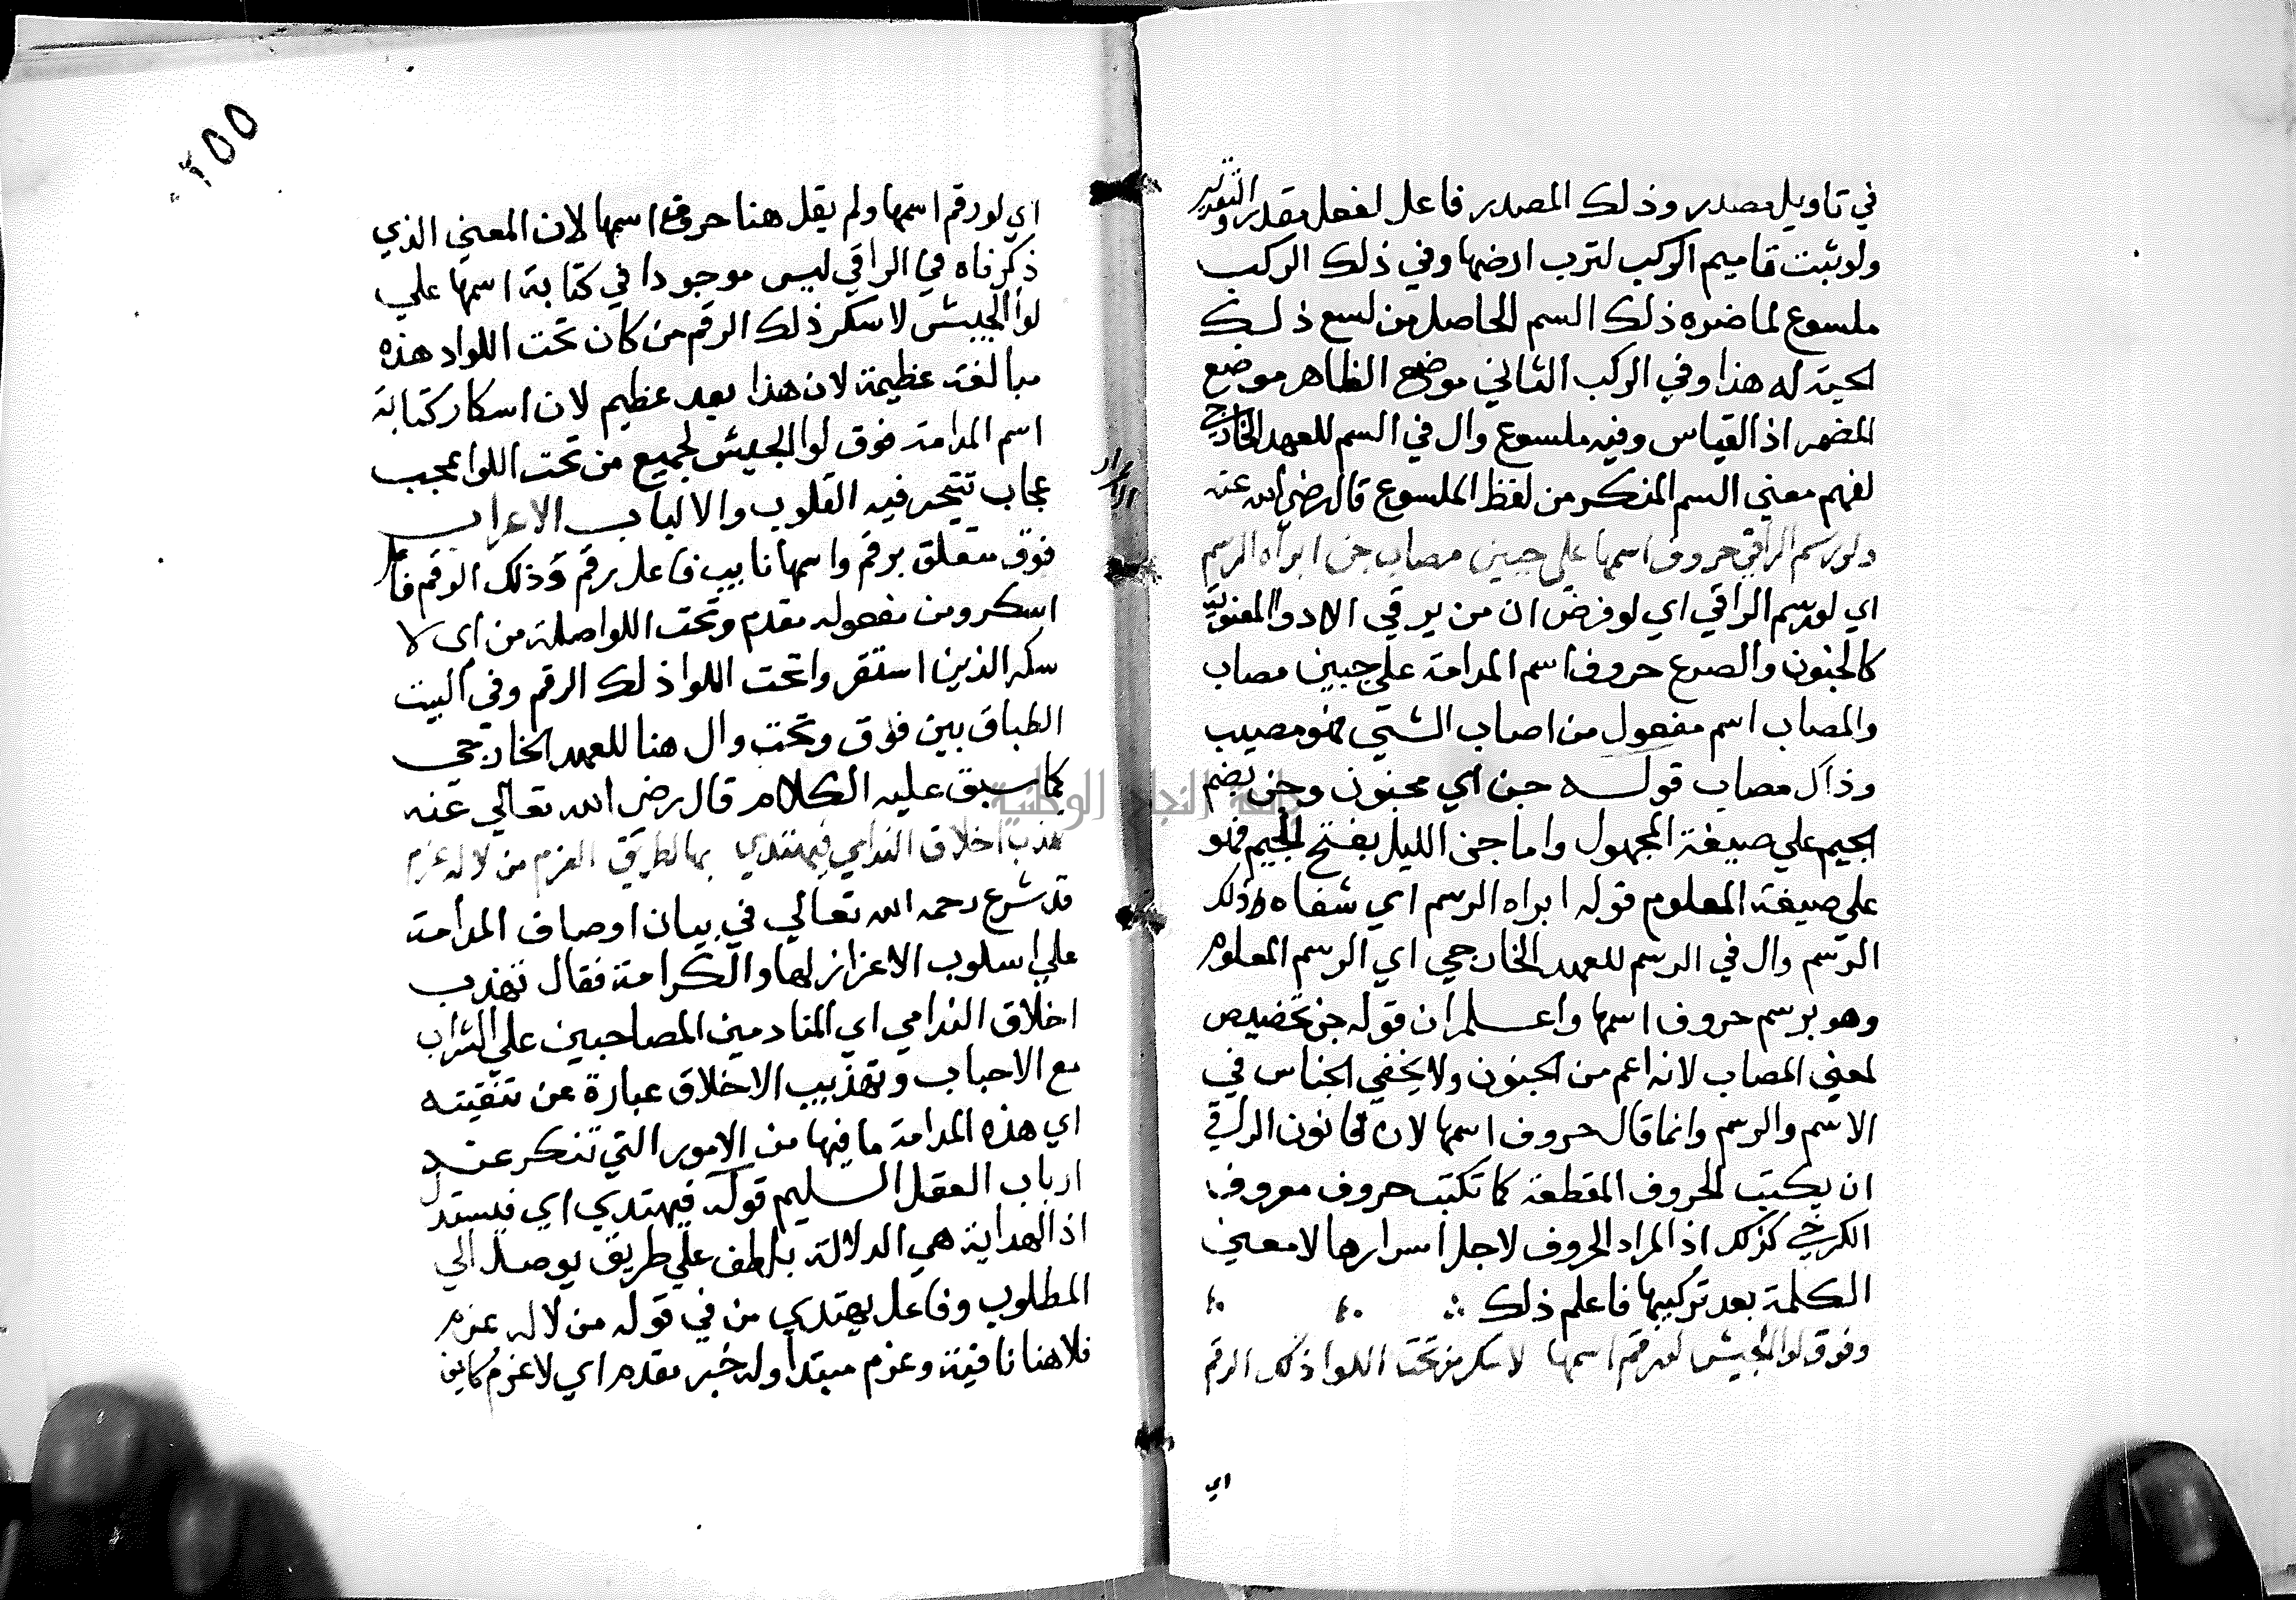 في تاويل مصدر وذلك المصدر فاعل لفعل مقدر والتقدير
ولو ثبت تاميم الركب لترب ارضها وفي ذلك الركب
ملسوع لما ضره ذلك السم الحاصل من لسع ذلك
الحية له هذا وفي الركب الثاني موضع الظاهر موضع
المضمر اذ القياس وفيه ملسوع وال في السم للعهد الخارجي
لفهم معني السم المنكر من لفظ الملسوع قال رضي الله عنه
ولو رسم الراقي حروف اسمها علي جبين مصاب جن ابراه الرسم
اي لو رسم الراقي اي لو فرض ان من يرقي الادوا المعنوية
كالجنون والصرع حروف اسم المدامة علي جبين مصاب
والمصاب اسم مفعول من اصاب الشي فهو مصيب
وذاك مصاب قوله جن اي مجنون وجن بضم
الجيم علي صيغة المجهول واما جن الليل بفتح الجيم فهو
علي صيغة المعلوم قوله ابراه الرسم اي شفاه ذلك
الرسم وال في الرسم للعهد الخارجي اي الرسم المعلوم
وهو برسم حروف اسمها واعلم ان قوله جن تخصيص
لمعني المصاب لانه اعم من الجنون ولا يخفي الجناس في
الاسم والرسم وانما قال حروف اسمها لان قانون الراقي
ان يكتب الحروف المقطعة كما تكتب حروف معروف
الكرخي كذلك اذ المراد الحروف لاجل اسرارها لا معني
الكلمة بعد تركيبها فاعلم ذلك
وفوق لوا الجيش لو رقم اسمها لاسكر من تحت اللوا ذلك الرقم
اي
٢٥٥
اي لو رقم اسمها ولم يقل هنا حروف اسمها لان المعني الذي
ذكرناه في الراقي ليس موجودا في كتابة اسمها علي
لوا الجيش لاسكر ذلك الرقم من كان تحت اللوا وهذه
مبالغة عظيمة لان هذا بعد عظيم لان اسكار كتابة
اسم المدامة فوق لوا الجيش لجميع من تحت اللوا عجب
عجاب تتحير فيه القلوب والالباب الاعراب
فوق متعلق برقم واسمها نايب فاعل رقم وذلك الرقم فاعل
اسكر ومن مفعوله مقدم وتحت اللوا صلة من اي لا
سكر الذين استقروا تحت اللوا ذلك الرقم وفي البيت
الطباق بين فوق وتحت وال هنا للعهد الخارجي
كما سبق عليه الكلام قال رضي الله تعالي عنه
تهذب اخلاق الندامي فيهتدي بها لطريق العزم من لا له عزم
قد شرع رحمه الله تعالي في بيان اوصاف المدامة
علي اسلوب الاعزاز لها والكرامة فقال تهذب
اخلاق الندامي اي المنادمين المصاحبين علي الشراب
مع الاحباب وتهذيب الاخلاق عبارة عن تنقيته
اي هذه المدامة ما فيها من الامور التي تنكر عند
ارباب العقل السليم قوله فيهتدي اي فيستدل
اذ الهداية هي الدلالة بلطف علي طريق يوصل الي
المطلوب وفاعل يهتدي من في قوله من لا له عزم
فلا هنا نافية وعزم مبتدا وله خبر مقدم اي لا عزم كاين